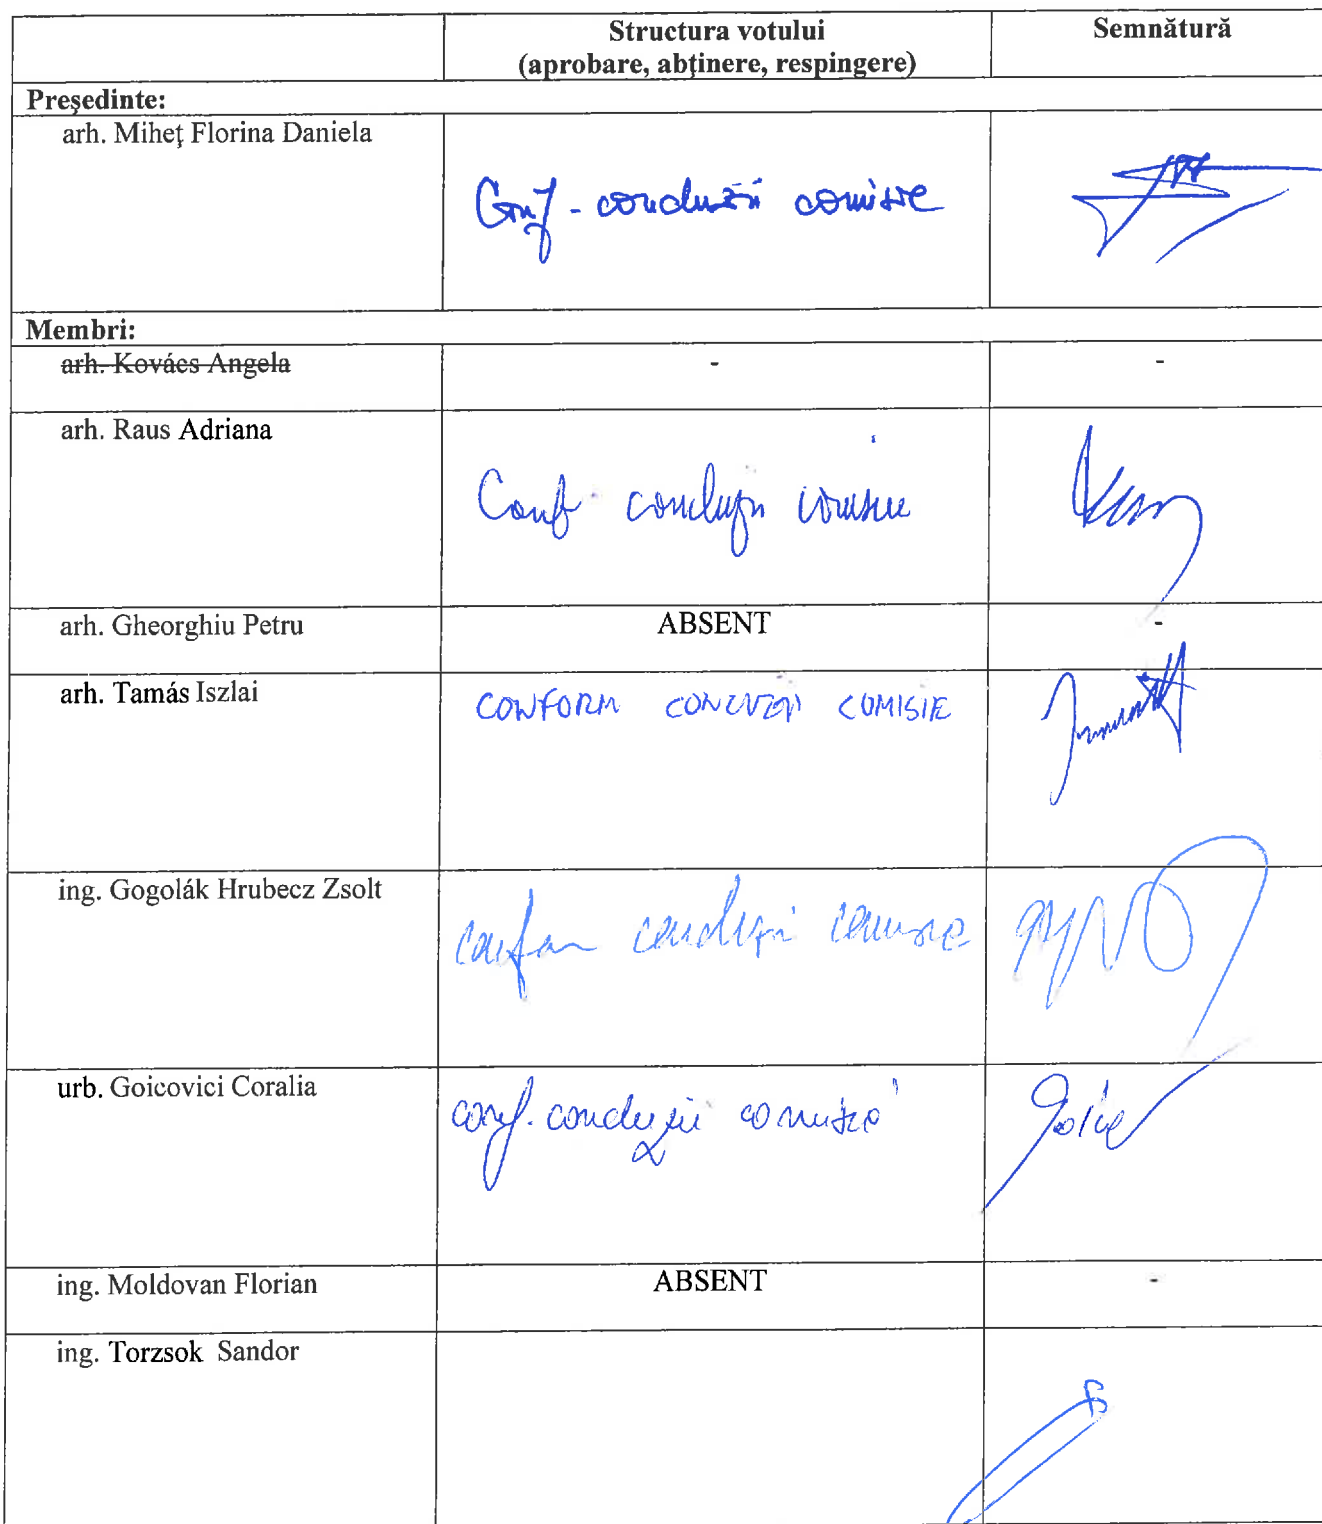 Structura votului Semnătură
(aprobare, abţinere, respingere)
Preşedinte:
arh. Miheţ Florina Daniela
Conf - concluzii comisie
Membri:
arh. Kovács Angela - -
arh. Raus Adriana
Conf concluzii comisie
arh. Gheorghiu Petru ABSENT -
arh. Tamás Iszlai
CONFORM CONCLUZII COMISIE
ing. Gogolák Hrubecz Zsolt
conform concluzii comisie
urb. Goicovici Coralia
conf. concluzii comisie
ing. Moldovan Florian ABSENT -
ing. Torzsok Sandor